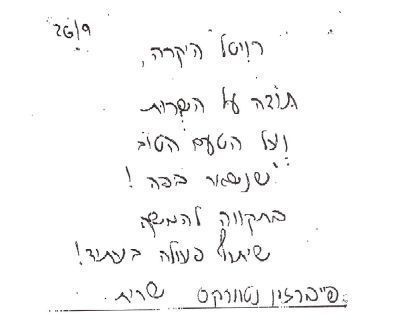 26/9
רויטל היקרה,
תודה על השרות
ועל הטעם הטוב
שנשאר בפה!
בתקווה להמשך
שיתוף פעולה בעתיד!
שרית פייברזון נטוורקס